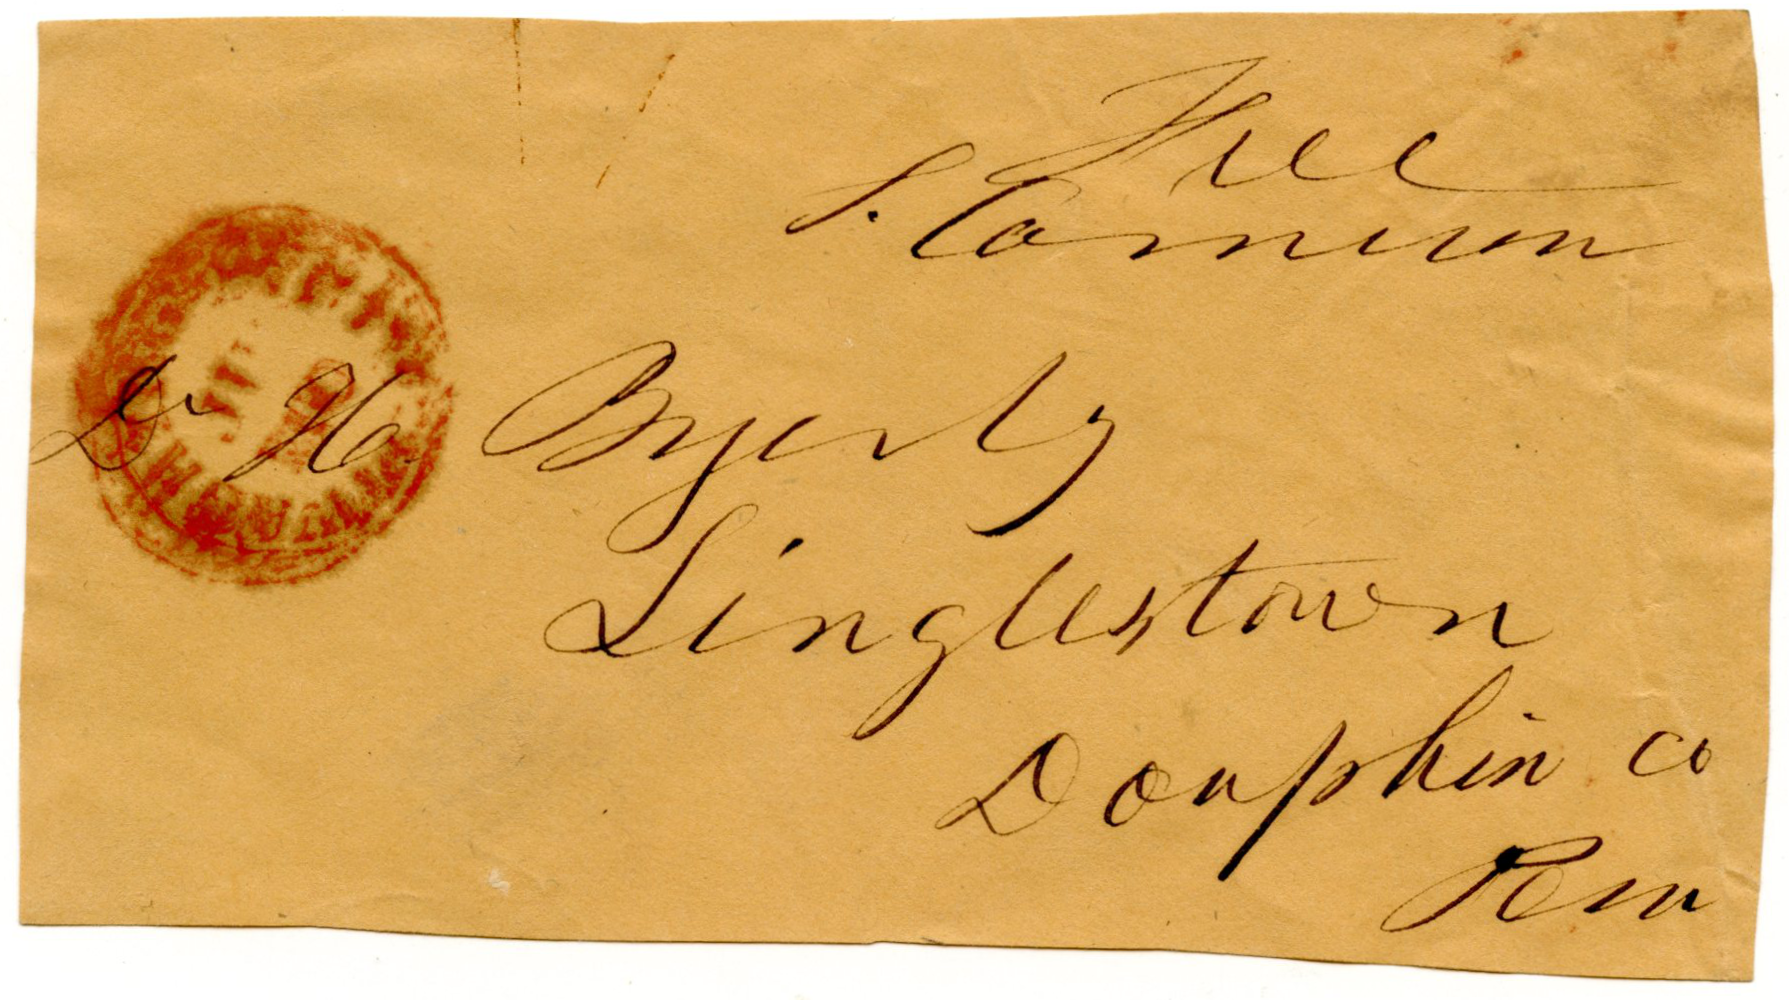 Free
S. Cameron
Dr H. Byerly
Linglestown
Douphin Co
Penn